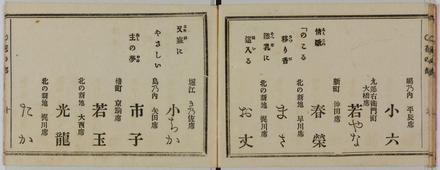 嶋乃内 平辰席
小六
九郎右衛門町 大橋席
若やな
新町 沖田席
春榮
北の新地 早川席
まさ
北の新地 梶川席
お丈
情眠
「のこる
移り香
這入る
堀江 き乃佐席
小ちか
島乃内 矢田席
市子
新町 京駒席
若玉
北の新地 大西席
光龍
北の新地 梶川席
たか
又寐に
やさしい
主の夢